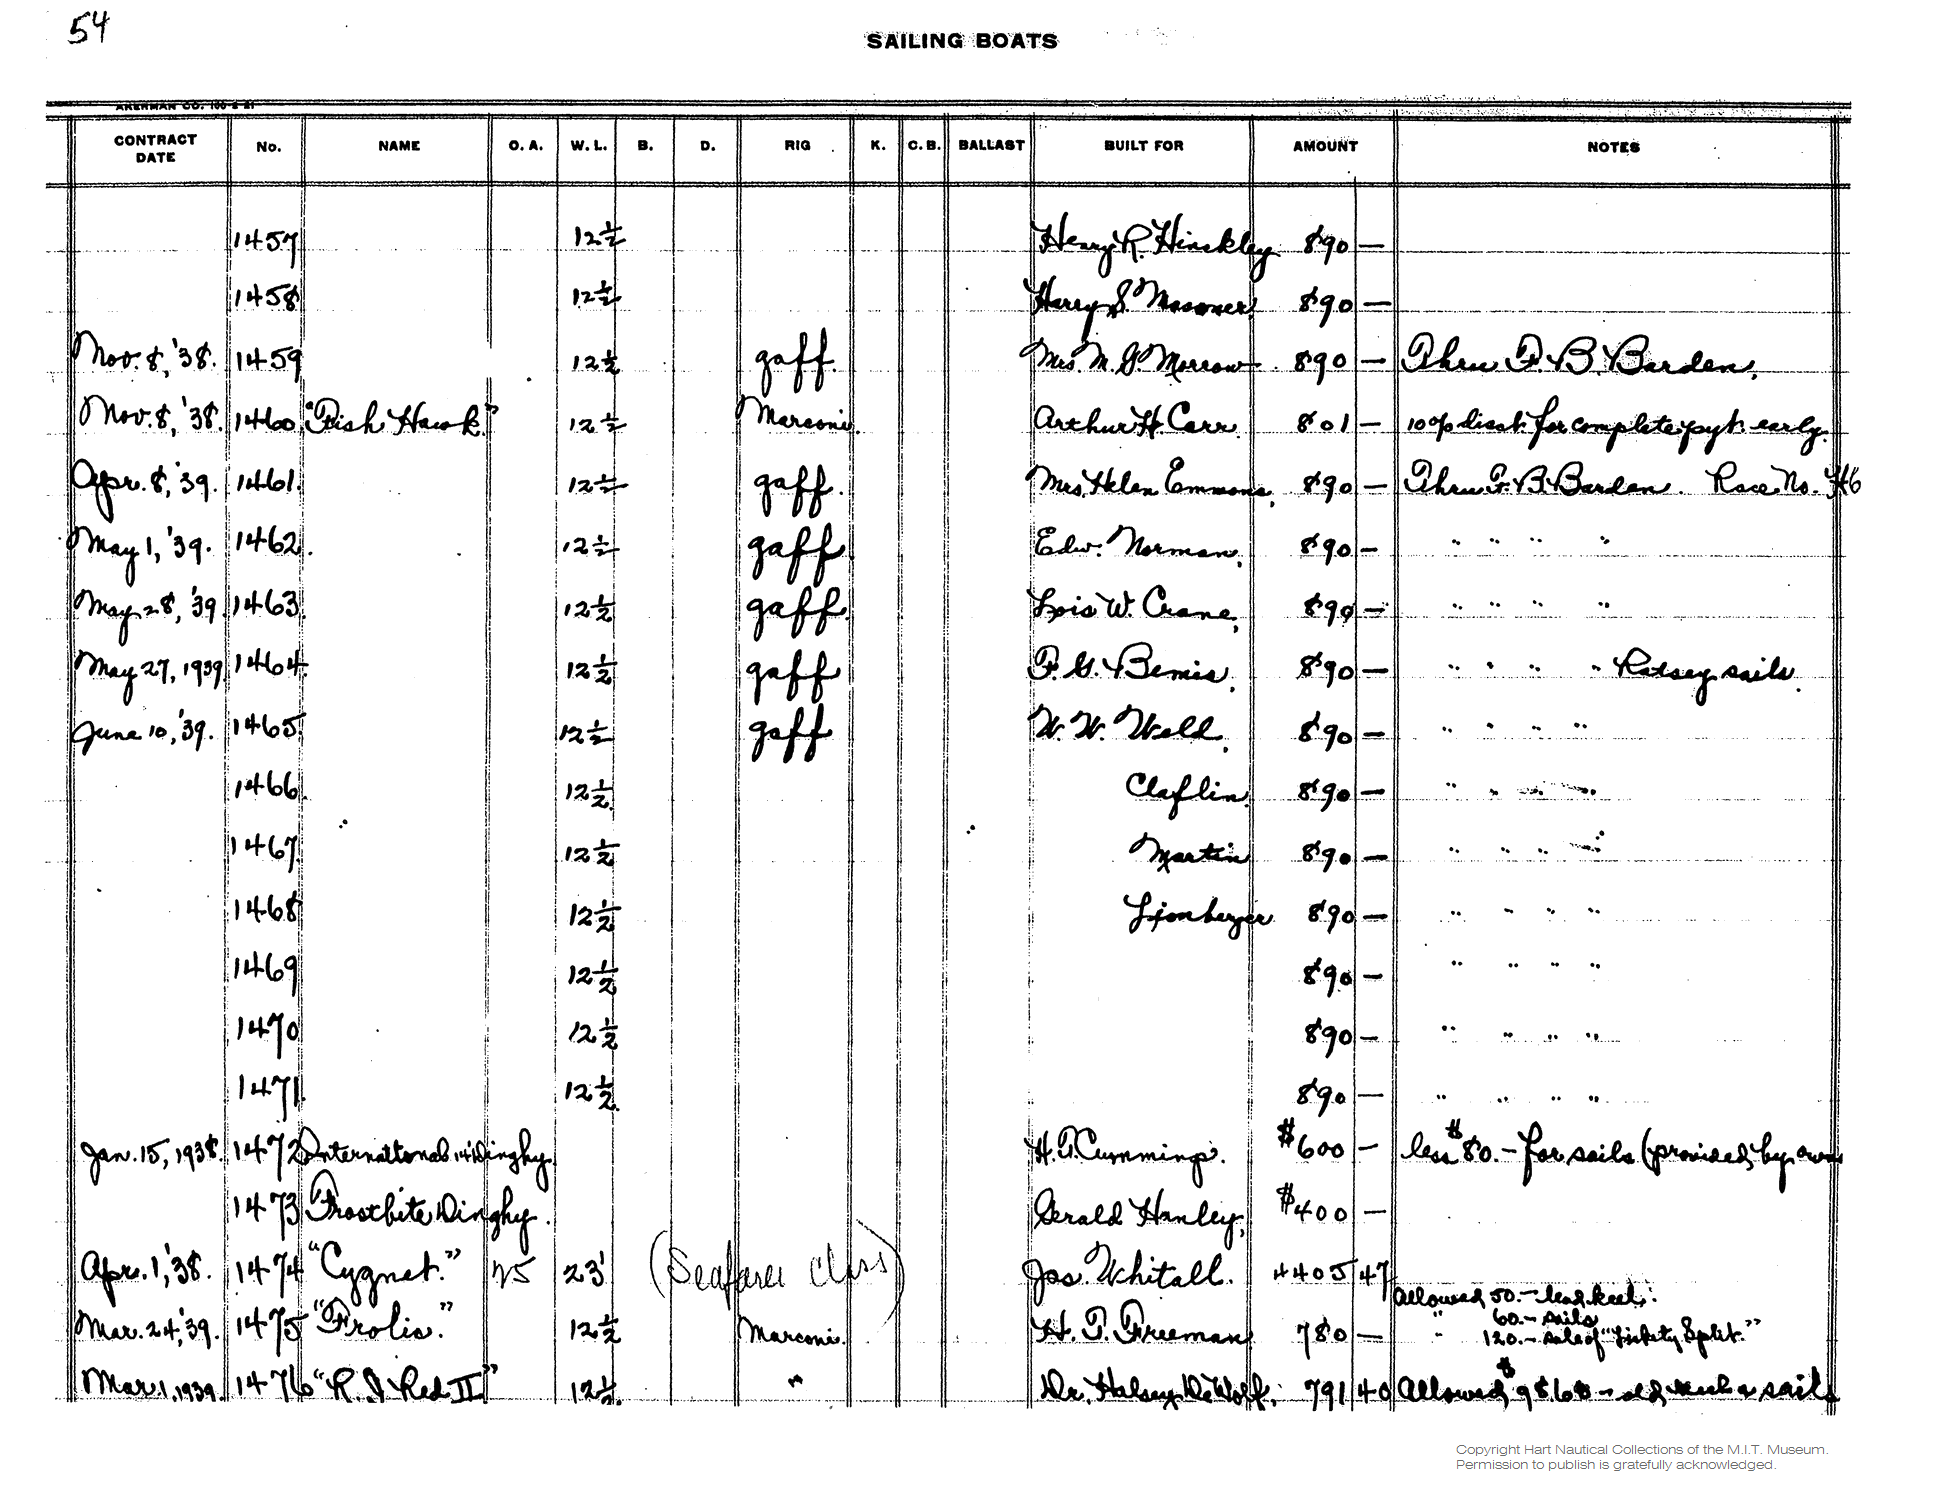 54
SAILING BOATS
AKERMAN CO.
CONTRACT DATE No. NAME O. A. W. L. B. D. RIG K. C. B. BALLAST BUILT FOR AMOUNT NOTES
1457 12 1/2 Henry R. Hinckley 890 —
1458 12 1/2 Harry S. 890 —
Nov. 8, '38. 1459 12 1/2 gaff. Mrs. M. G. Morrow 890 — Thru F. B. Barden.
Nov. 8, '38. 1460 "Fish Hawk." 12 1/2 Marconi. Arthur H. Carr. 801 — 10% disct. for complete pyt. early.
Apr. 8, '39. 1461. 12 1/2 gaff. Mrs. Helen Emmons, 890 — Thru F. B. Barden. Race No. H6
May 1, '39. 1462. 12 1/2 gaff. Edw. Norman, 890 — " " " "
May 28, '39. 1463. 12 1/2 gaff. Lois W. Crane, 890 — " " " "
May 27, 1939 1464. 12 1/2 gaff F. G. Bemis, 890 — " " " " Ratsey sails.
June 10, '39. 1465. 12 1/2 gaff W. W. Weld, 890 — " " " "
1466. 12 1/2 Claflin. 890 — " " " "
1467. 12 1/2 Martin 890 — " " " "
1468 12 1/2 Lionberger 890 — " " " "
1469 12 1/2 890 — " " " "
1470 12 1/2 890 — " " " "
1471. 12 1/2 890 — " " " "
Jan. 15, 1938. 1472 International 14' Dinghy. H. T. Cummings. $600 — less $80. — for sails (provided by
1473 Frostbite Dinghy. Gerald Hanley, $400 —
Apr. 1, '38. 1474 "Cygnet." 25 23' (Seafarer class) Jas. Whitall. 4405 47
Allowed 50. — lead keel.
Mar. 24, '39. 1475 "Frolic." 12 1/2 Marconi. H. T. Freeman 780 — " 60. — sails
" 120. — sale of "Lickety Split."
Mar. 1, 1939. 1476 "R. I. Red II" 12 1/2 " Dr. Halsey DeWolf, 791 40 Allowed $98.60 — old sails
Copyright Hart Nautical Collections of the M.I.T. Museum.
Permission to publish is gratefully acknowledged.